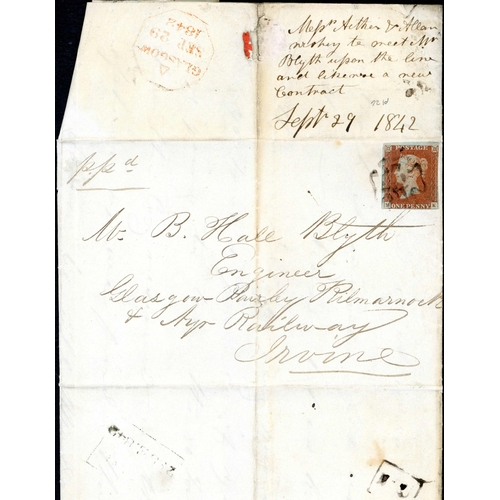 GLASGOW
SEP 29
1842
Messrs Aitken & Allan
wishing to meet Mr
Blyth upon the line
and likewise a new
Contract
Septr 29 1842
ppd
POSTAGE
ONE PENNY
Mr B. Hall Blyth
Engineer
Glasgow Paisley Kilmarnock
& Ayr Railway
Irvine